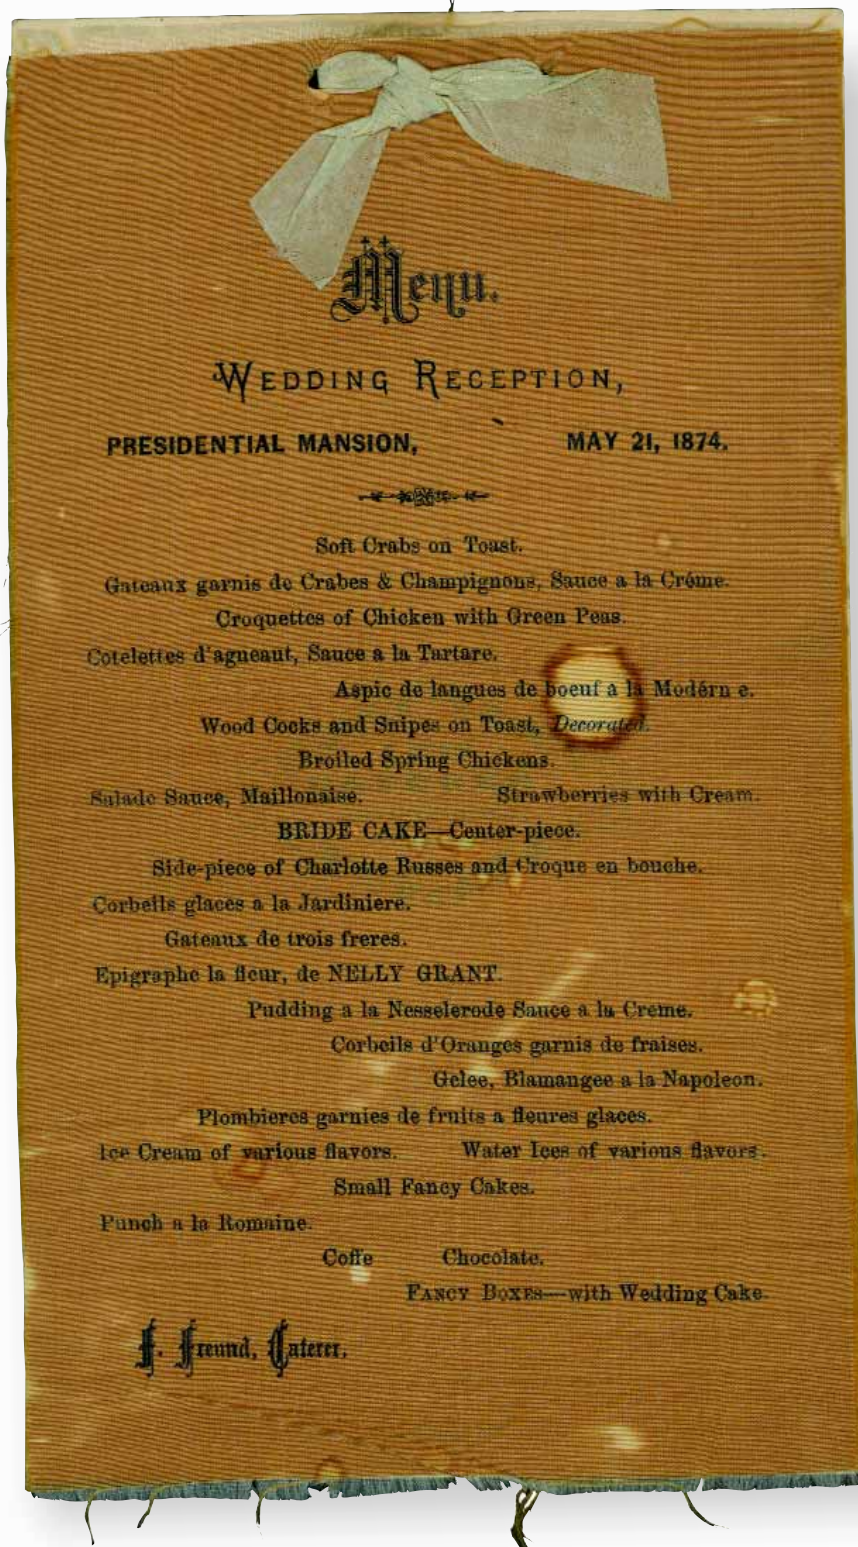 Menu.
WEDDING RECEPTION,
PRESIDENTIAL MANSION, MAY 21, 1874.
Soft Crabs on Toast.
Gateaux garnis de Crabes & Champignons, Sauce a la Créme.
Croquettes of Chicken with Green Peas.
Cotelettes d'agneaut, Sauce a la Tartare.
Aspic de langues de boeuf a la Modérn e.
Wood Cocks and Snipes on Toast, Decorated.
Broiled Spring Chickens.
Salade Sauce, Maillonaise. Strawberries with Cream.
BRIDE CAKE—Center-piece.
Side-piece of Charlotte Russes and Croque en bouche.
Corbeils glaces a la Jardiniere.
Gateaux de trois freres.
Epigraphe la fleur, de NELLY GRANT.
Pudding a la Nesselerode Sauce a la Creme.
Corbeils d'Oranges garnis de fraises.
Gelee, Blamangee a la Napoleon.
Plombieres garnies de fruits a fleures glaces.
Ice Cream of various flavors. Water Ices of various flavors.
Small Fancy Cakes.
Punch a la Romaine.
Coffe Chocolate.
FANCY BOXES—with Wedding Cake.
F. Freund, Caterer.